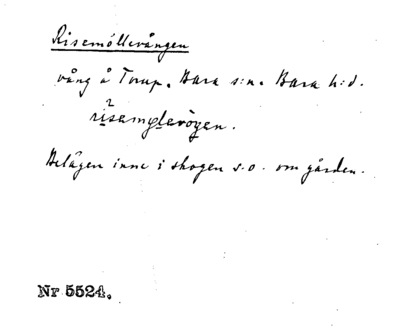 Risemöllevången
vång å Torup. Bara s:n. Bara h:d.
risemølevången.
Belägen inne i skogen s.o. om gården.
Nr 5524.